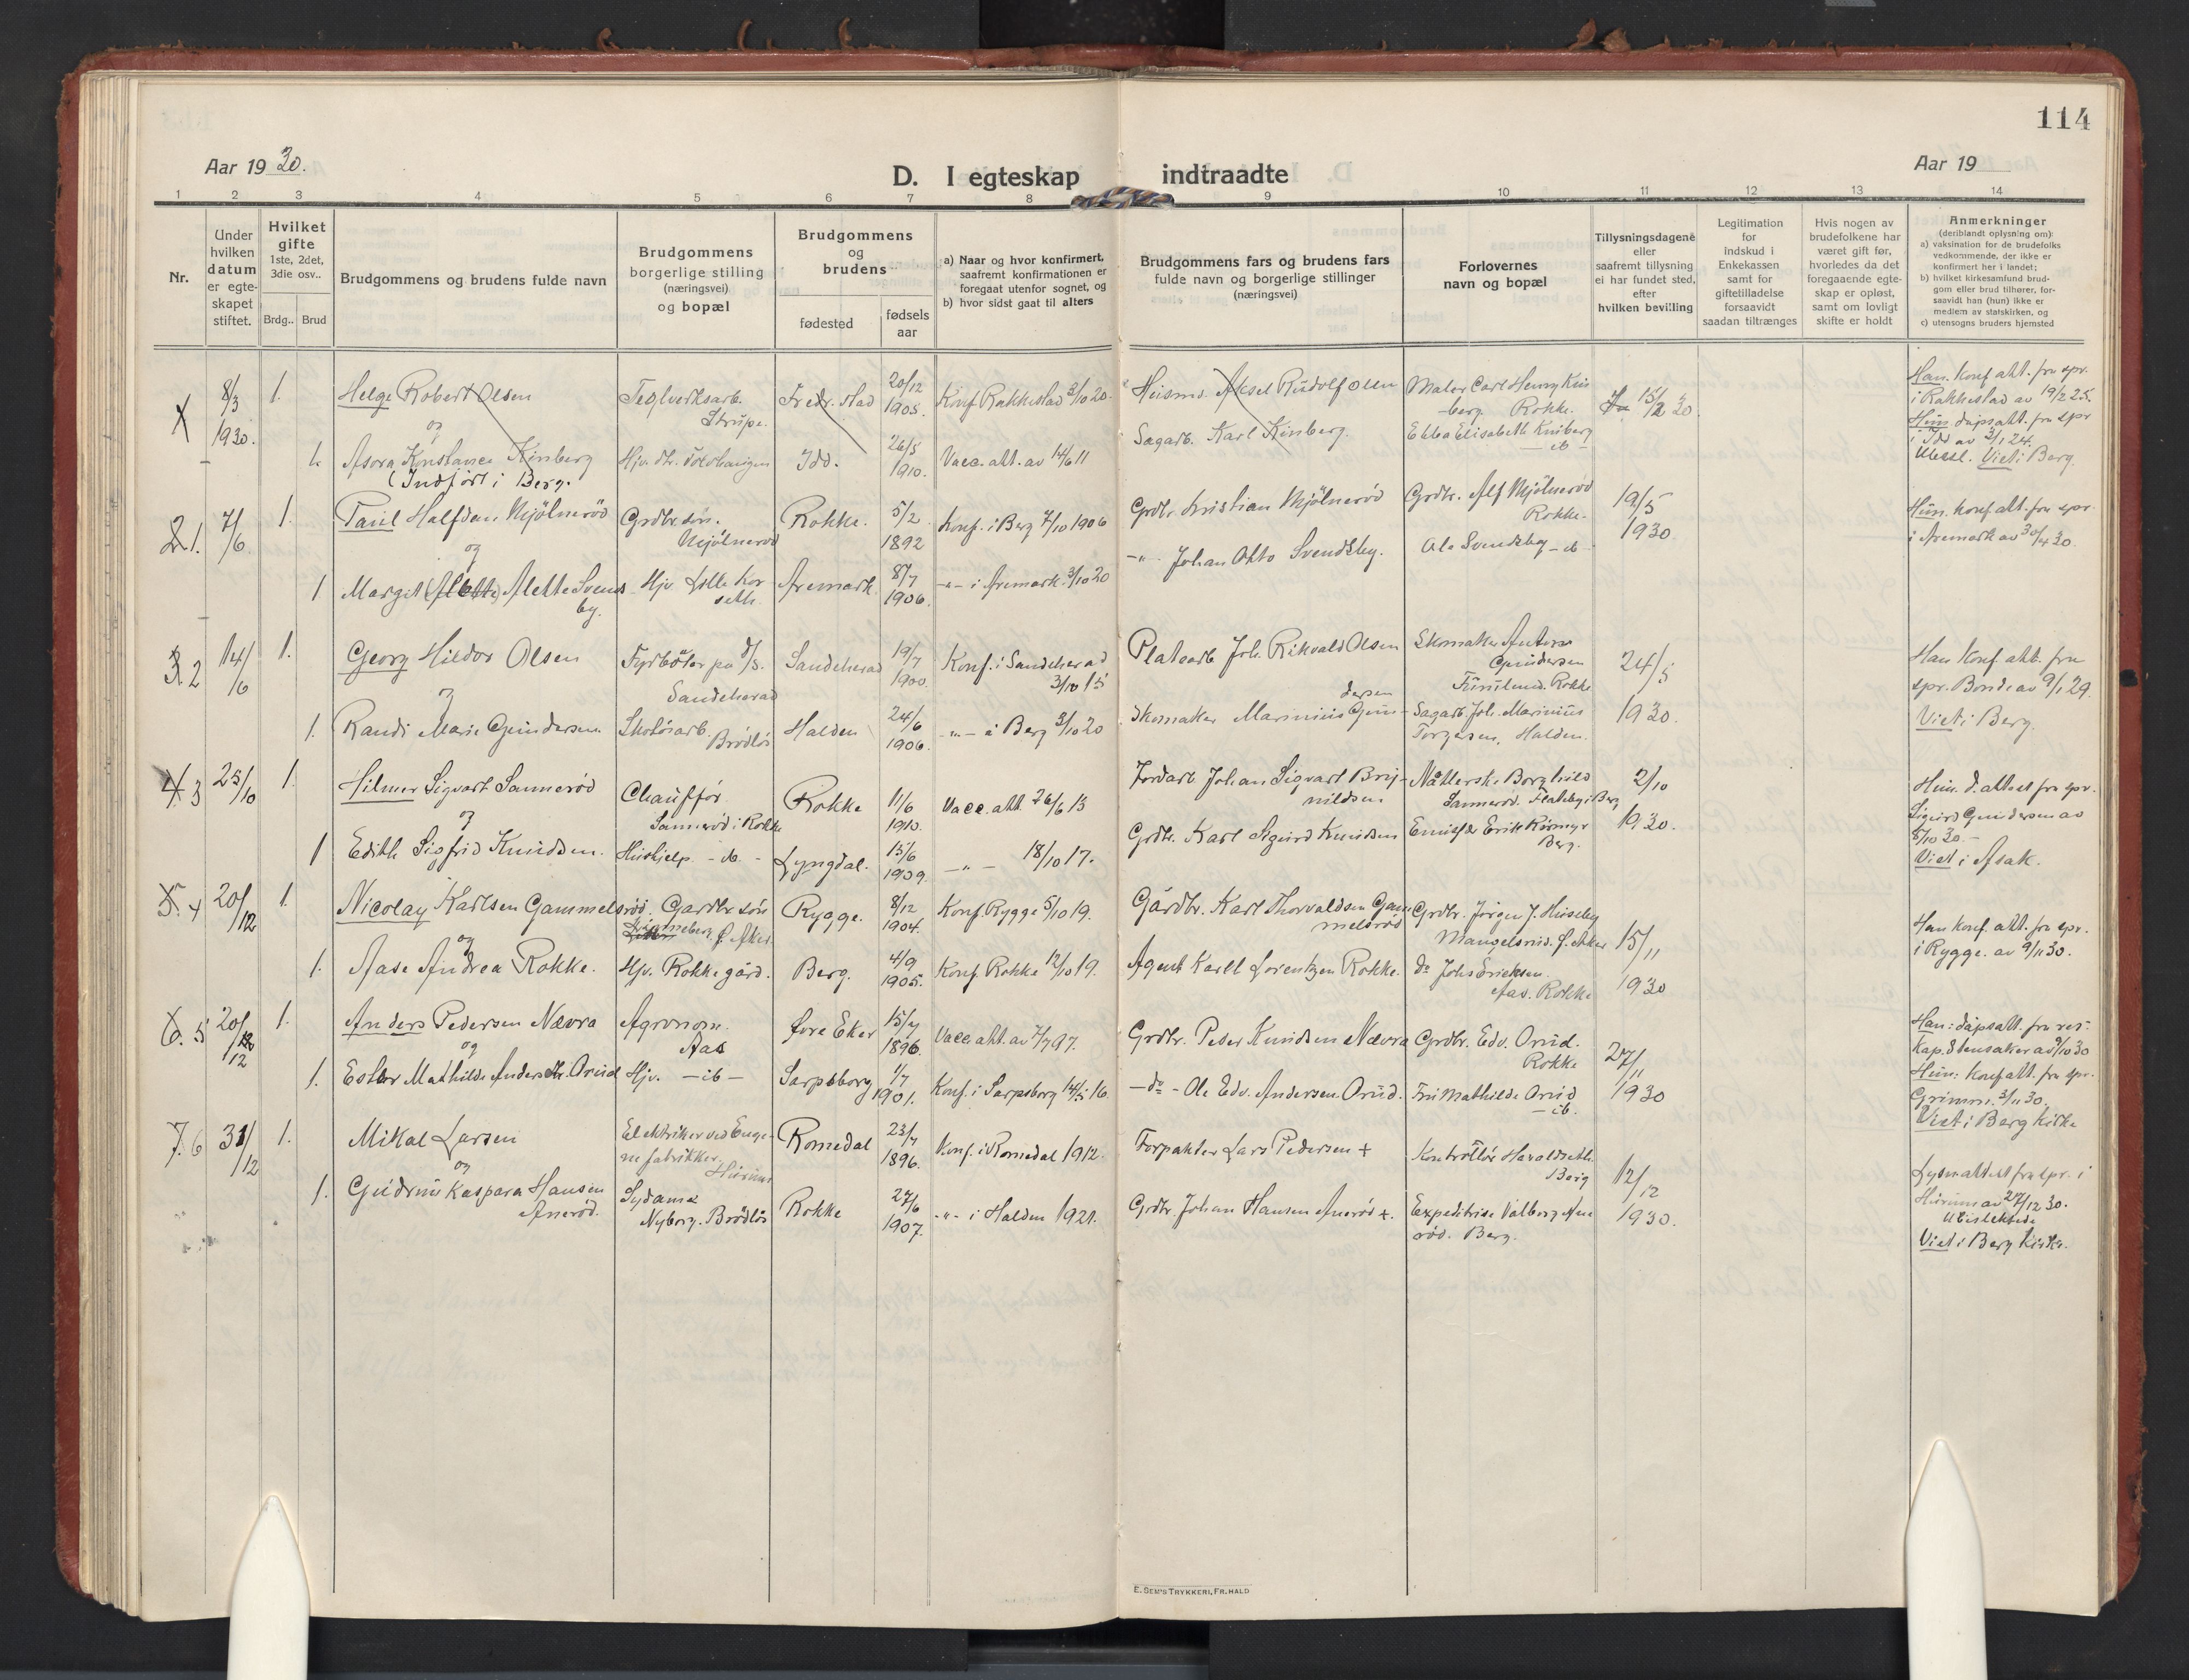 114
Aar 1930.
D. I egteskap indtraadte
Aar 19
1 2 3 4 5 6 7 8 9 10 11 12 13 14
Nr.
Under
hvilken
datum
er egte-
skapet
stiftet.
Hvilket
gifte
1ste, 2det,
3die osv..
Brdg.. Brud
Brudgommens og brudens fulde navn
Brudgommens
borgerlige stilling
(næringsvei)
og bopæl
Brudgommens
og
brudens
fødested
fødsels
aar
a) Naar og hvor konfirmert,
saafremt konfirmationen er
foregaat utenfor sognet, og
b) hvor sidst gaat til alters
Brudgommens fars og brudens fars
fulde navn og borgerlige stillinger
(næringsvei)
Forlovernes
navn og bopæl
Tillysningsdagene
eller
saafremt tillysning
ei har fundet sted,
efter
hvilken bevilling
Legitimation
for
indskud i
Enkekassen
samt for
giftetilladelse
forsaavidt
saadan tiltrænges
Hvis nogen av
brudefolkene har
været gift før,
hvorledes da det
foregaaende egte-
skap er opløst,
samt om lovligt
skifte er holdt
Anmerkninger
(deriblandt oplysning om):
a) vaksination for de brudefolks
vedkommende, der ikke er
konfirmert her i landet;
b) hvilket kirkesamfund brud-
gom eller brud tilhører, for-
saavidt han (hun) ikke er
medlem av statskirken, og
c) utensogns bruders hjemsted
8/3
1930.
1.
Helge Robert Olsen
og
Teglverksarb.
Strupe.
Fredr.stad
20/12
1905.
Konf. Rakkestad 3/10 20.
Aksel Rudolf Olsen
Maler Carl Henry Kin
berg Rokke.
15/2 30.
Han. konf. att. fra spr.
i Rakkestad av 19/2 25.
Hun dåpsatt. fra spr
i Idd av 3/1 24.
Viet i Berg.
1.
Asora Konstance Kinberg
(Indført i Berg.
Idd.
26/5
1910.
Vacc. att. av 14/6 11
Sagarb. Karl Kinberg.
Ebba Elisabeth Kinberg
- ib -
21.
7/6
1.
Paul Halfdan Mjølnerød
og
Grdbr. søn.
Mjølnerød
Rokke.
5/2
1892
Konf. i Berg 7/10 1906
Grdbr. Kristian Mjølnerød
Grdbr. Alf Mjølnerød
Rokke.
19/5
1930
Hun. konf. att. fra spr.
i Aremark av 30/4 30.
1
Margit (Alette) Alette Svends
by.
Hjv. Lille Kor
seth.
Aremark
8/7
1906.
-"- i Aremark. 3/10 20
-"- Johan Otto Svendsby.
Ole Svendsby - ib
3. 2
14/6
1.
Georg Hildor Olsen
og
Fyrbøter på d/s.
Sandeherad
Sandeherad
19/7
1900.
Konf. i Sandeherad
3/10 15
Platearb. Joh. Rikvald Olsen
Skomaker Anton
Gundersen
Rokke
24/5
1930.
Han konf. att. fra
spr. Bonde av 9/1 29.
Viet i Berg.
1.
Randi Marie Gundersen
Skotøiarb.
Brødløs
Halden
24/6
1906.
-"- i Berg 3/10 20
Skomaker Marinius Gun-
dersen
Sagarb. Joh. Marinius
Torgersen, Halden.
4. 3
25/10
1.
Hilmer Sigvart Sannerød
og
Chauffør
Sannerød i Rokke
Rokke
11/6
1910.
Vacc. att 26/6 13
Jordarb Johan Sigvart Bryn-
nildsen
Nåtlerske Borghild
Sannerød. Flateby i Berg
2/10
1930.
Hun. d. attest fra spr.
Sigurd Gundersen av
8/10 30. -
Viet i Asak.
1
Edith Sigfrid Knudsen.
Hushjelp - ib. -
Lyngdal.
15/6
1909.
- " - 18/10 17.
Grdbr. Karl Sigurd Knudsen
Berg.
5. 4
20/12
1.
Nicolay Karlsen Gammelsrød.
og
Gårdbr søn
Rygge.
8/12
1904.
Konf. Rygge 5/10 19.
Gårdbr. Karl Thorvaldsen Gam
melsrød
Grdbr. Jørgen J. Huseby
15/11
1930
Han konf. att. fra spr.
i Rygge. av 9/11 30.
1.
Aase Andrea Rokke.
Hjv. Rokke gård.
Berg.
4/9
1905.
Konf. Rokke 12/10 19.
Agent Karl Lorentzen Rokke.
do Johs Erichsen.
Aas. Rokke
6. 5
20/12
1.
Anders Pedersen Nævra
og
Agronom.
Aas
Øvre Eker
15/7
1896.
Vacc. att. av 7/7 97.
Grdbr. Peder Knudsen Nævra
Grdbr. Edv. Orud.
Rokke
27/11
1930
Han: dåpsatt. fra res.
Kap. Stensaker av 9/10 30
Hun: konf att. fra spr.
Grimm. 3/11 30.
Viet i Berg kirke
1.
Ester Mathilde Andersdtr. Orud
Hjv. - ib -
Sarpsborg
1/7
1901.
Konf. i Sarpsborg 14/5 16.
- do - Ole Edv. Andersen Orud.
Fru Mathilde Orud
- ib.
7. 6
31/12
1.
Mikal Larsen
og
Elektriker ved Enge-
ne fabrikker.
Hurum
Romedal
23/7
1896.
Konf. i Romedal 1912.
Forpakter Lars Pedersen +
Kontrollør Haraldseth
Berg
12/12
1930.
Lysn attest fra spr. i
Hurum av 27/12 30.
Viet i Berg Kirke.
1.
Gudrun Kaspara Hansen
Anerød.
Sydame
Nyborg. Brødløs
Rokke
27/6
1907.
-"- i Halden 1921.
Grdbr. Johan Hansen Anerød +.
Expeditrise Valborg Ane
rød. Berg.
E. SEM'S TRYKKERI, FR.HALD